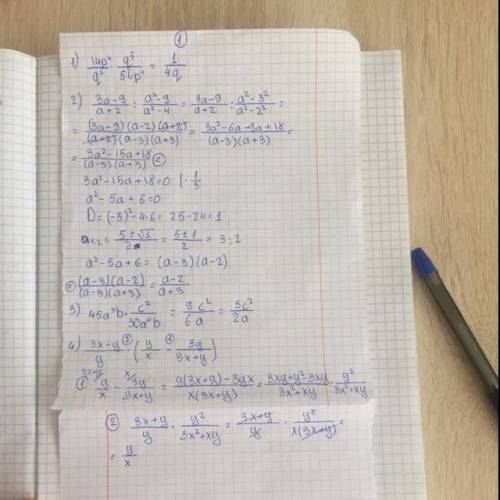 ①
1) 14p⁴/q⁶ · q⁵/56p⁴ = 1/4q
2) 3a-9/a+2 : a²-9/a²-4 = 3a-9/a+2 : a²-3²/a²-2² =
= (3a-9)(a-2)(a+2)/(a+2)(a-3)(a+3) = 3a²-6a-9a+18/(a-3)(a+3) =
= 3a²-15a+18/(a-3)(a+3) ②
3a²-15a+18=0 | · 1/3
a²-5a+6=0
D=(-5)²-4·6= 25-24=1
a₁,₂= 5±√1/2 = 5±1/2 = 3;2
a²-5a+6= (a-3)(a-2)
(a-3)(a-2)/(a-3)(a+3) = a-2/a+3
3) 45a³b · c²/30a⁴b = 9c²/6a = 3c²/2a
4) 3x+y/y ②· (y/x ①- 3y/3x+y)
① y/x - 3y/3x+y = y(3x+y)-3yx/x(3x+y) = 3xy+y²-3xy/3x²+xy = y²/3x²+xy
② 3x+y/y · y²/3x²+xy = 3x+y/y · y²/x(3x+y) =
= y/x